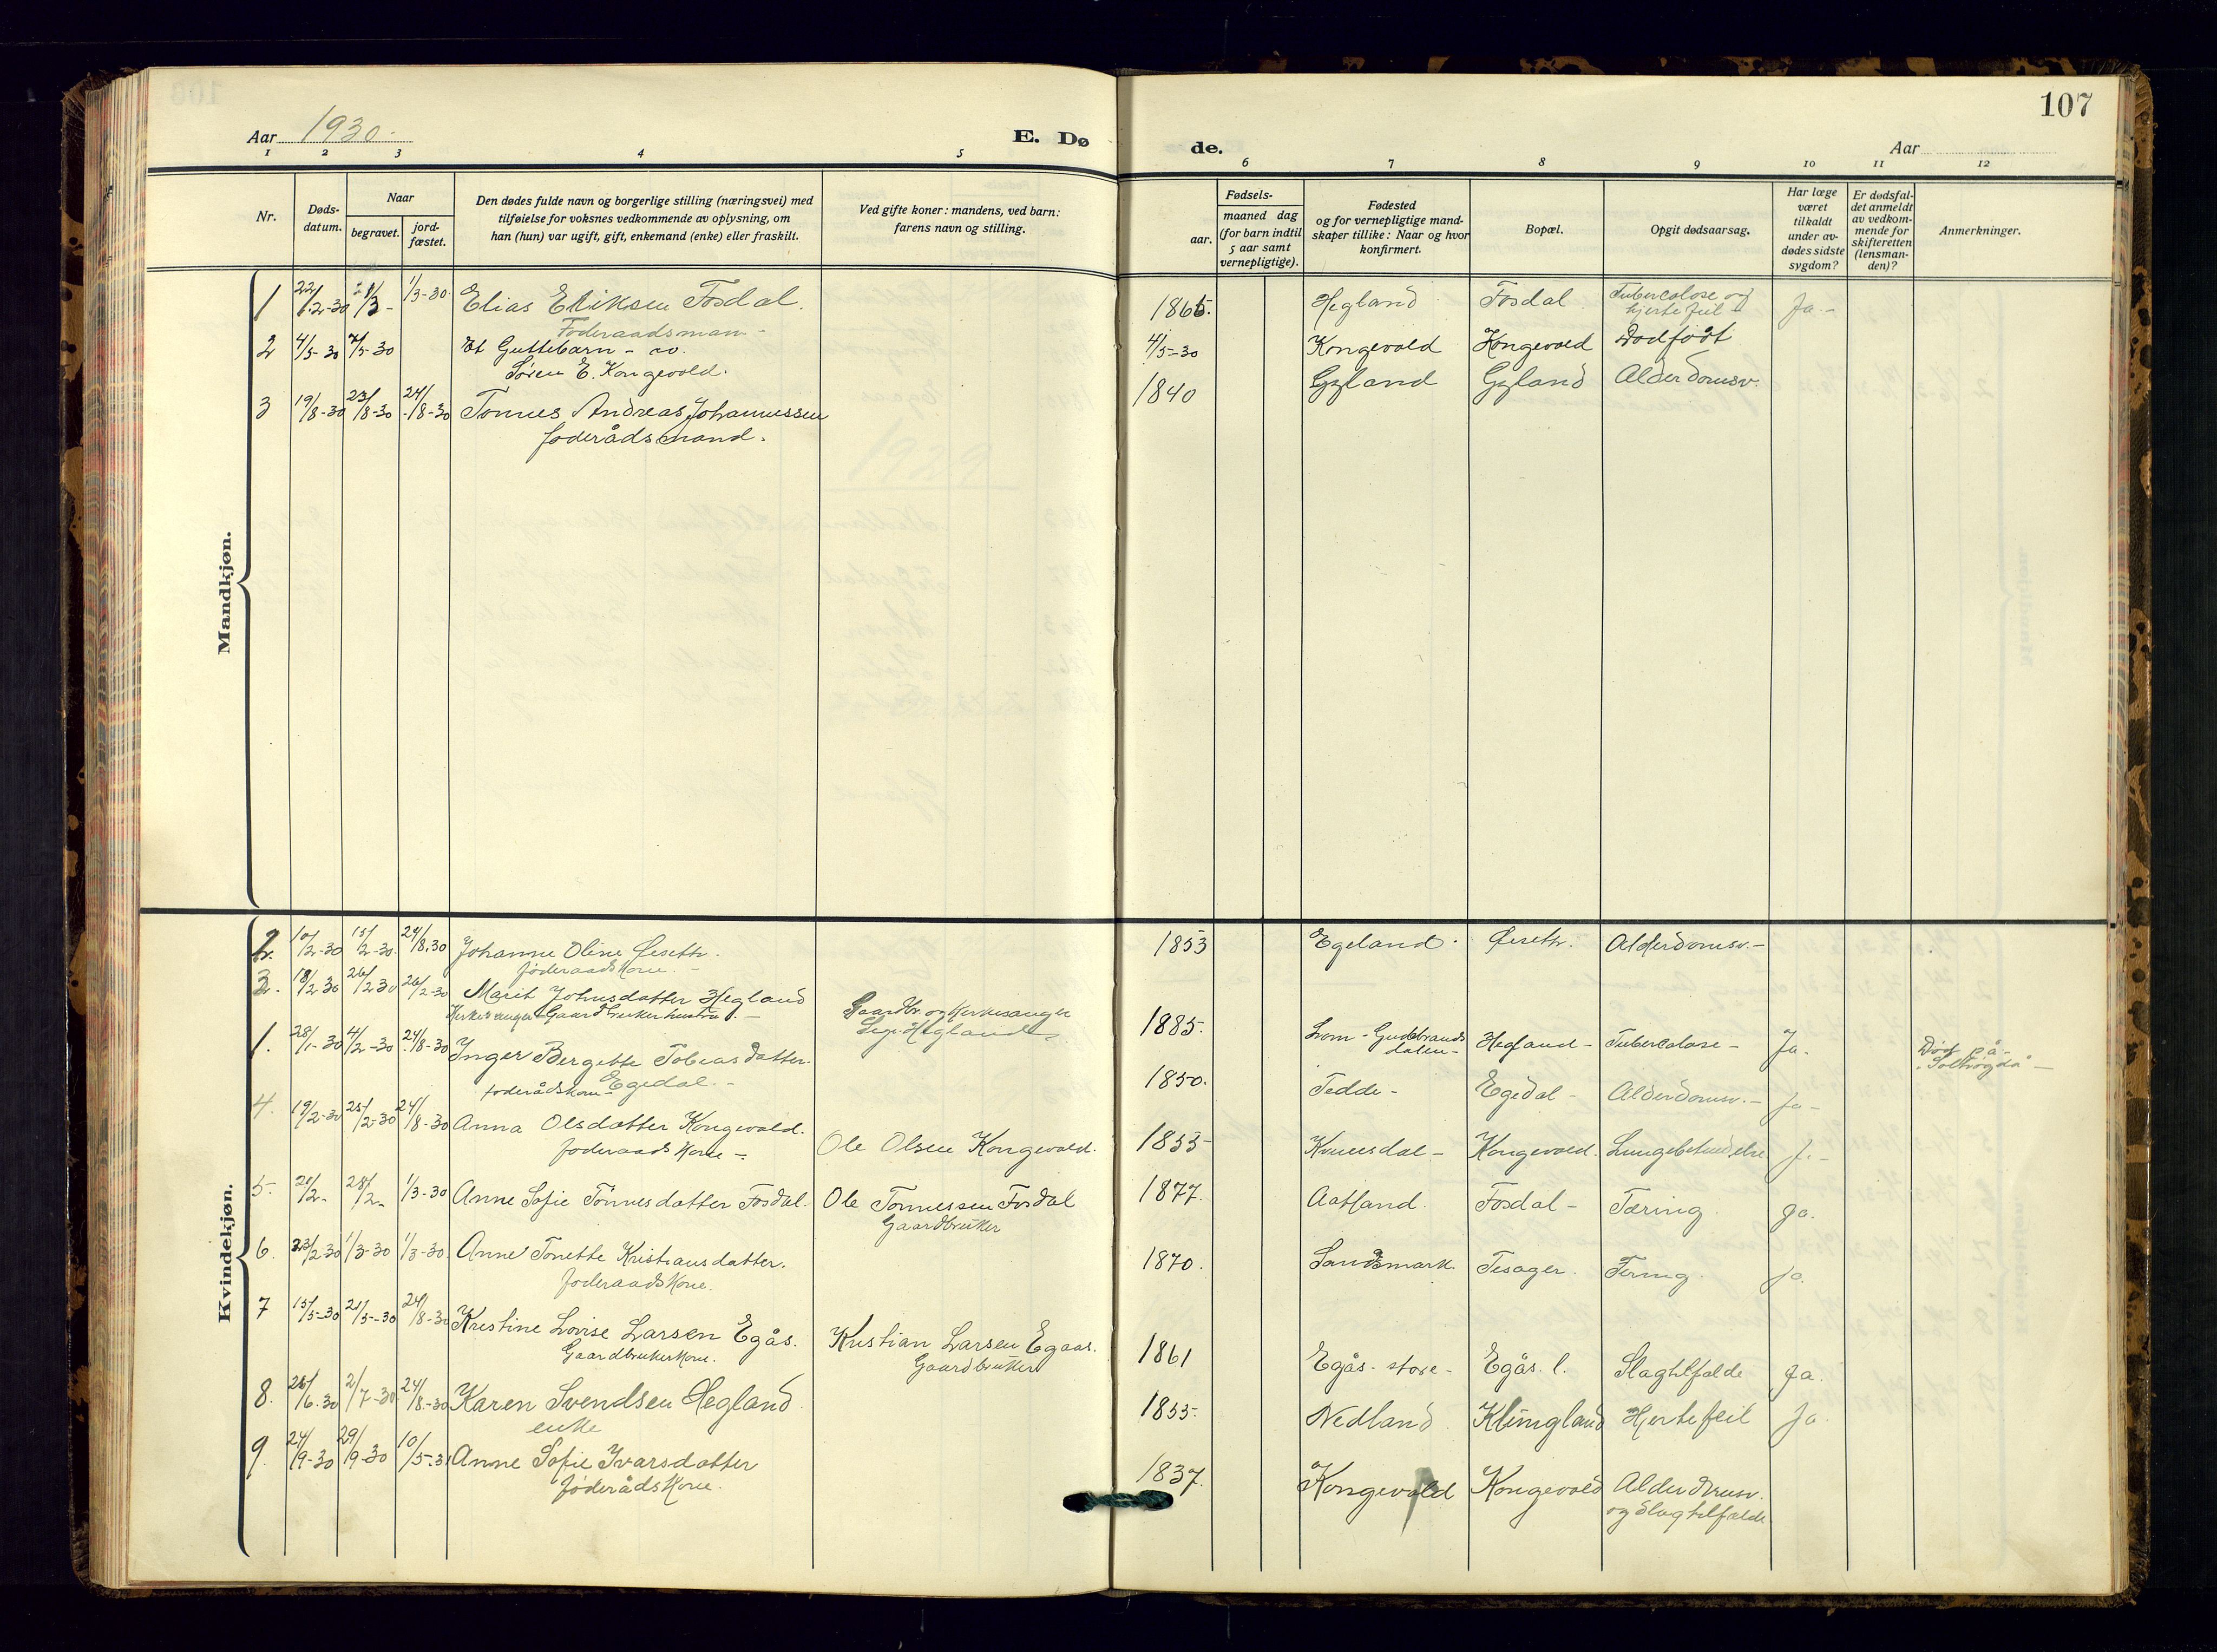 107
Aar 1930.
E. Dø
de.
Aar
1 2 3 4 5 6 7 8 9 10 11 12
Nr.
Døds-
datum.
Naar
begravet.
jord-
fæstet.
Den dødes fulde navn og borgerlige stilling (næringsvei) med
tilføielse for voksnes vedkommende av oplysning, om
han (hun) var ugift, gift, enkemand (enke) eller fraskilt.
Ved gifte koner: mandens, ved barn:
farens navn og stilling.
Fødsels-
aar.
maaned dag
(for barn indtil
5 aar samt
vernepligtige).
Fødested
og for vernepligtige mand-
skaper tillike: Naar og hvor
konfirmert.
Bopæl.
Opgit dødsaarsag.
Har læge
været
tilkaldt
under av-
dødes sidste
sygdom?
Er dødsfal-
det anmeldt
av vedkom-
mende for
skifteretten
(lensman-
den)?
Anmerkninger.
Mandkjøn.
1 22/2-30 1/3- 1/3-30. Elias Eliksen Fosdal. 1865. Hegland Fosdal Tubercolose og Ja-
Føderaadsman- hjertefeil-
2 4/5-30 7/5-30 Et Guttebarn - av. 4/5-30 Kongevold Kongevold Dødfødt
Søren E. Kongevold.
3 19/8-30 23/8-30 24/8-30 Tønnes Andreas Johannessen 1840 Gyland Gyland Alderdomsv.
føderådsmand.
Kvindekjøn.
2. 10/2-30 15/2-30. 24/8.30 Johanne Oline Øseth. 1853 Egeland. Øseth. Alderdomsv.-
føderaadskone.-
3. 18/2 30 26/2 30 26/2-30 Marit Johnsdatter Hegland Gaardbr. og Kirkesanger 1885. Lom-Gudbrands Hegland- Tubercolose- Ja. Død på-
Kirkesanger & Gaardbrukerhustru.- Hegland dalen-
1. 28/1-30 4/2-30 24/8-30 Inger Bergette Tobiasdatter. 1850. Tedde- Egedal- Alderdomsv.- Ja-
føderådskone- Egedal.-
4. 19/2-30 25/2-30 24/8-30 Anna Olsdatter Kongevold. Ole Olsen Kongevold. 1853- Kvinesdal- Kongevold. Lungebetendelse
føderaadskone-.
5. 21/2- 28/2- 1/3-30 Anne Sofie Tønnesdatter Fosdal. Ole Tønnessen Fosdal 1877. Aatland. Fosdal- Tæring. Ja.
Gaardbruker
6. 23/2-30 1/3-30 1/3-30 Anne Tonette Kristiansdatter. 1870. Sandsmark. Tesager. Tering. Ja.
føderaadskone.
7 15/5-30 21/5-30 24/8-30 Kristine Lovise Larsen Egås. Kristian Larsen Egaas. 1861 Egås-store- Egås. l. Slagtilfælde Ja.
Gaardbrukerkone. Gaardbruker
8. 25/6.30 2/7-30 24/8-30 Karen Svendsen Hegland. 1855. Nedland Klungland Hjertefeil Ja
enke
9. 24/9-30 29/9-30 10/5-31 Anne Sofie Ivarsdatter 1837. Kongevold Kongevold Alderdomsv.
føderådskone. og Slagtilfælde.